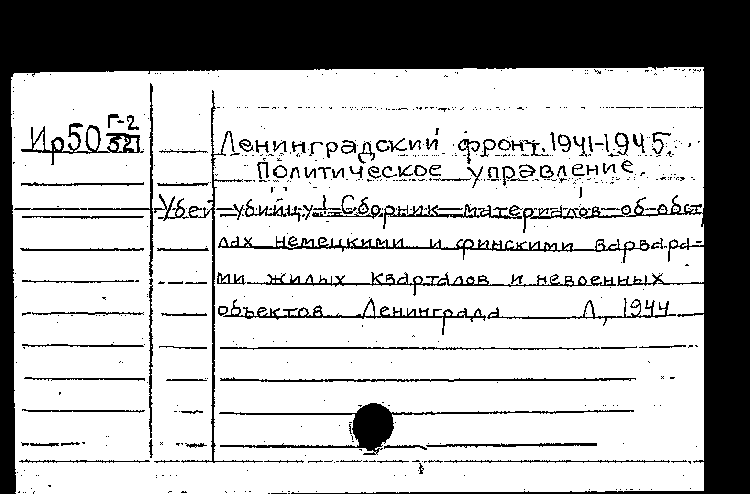 Ир50 Г-2/521
Ленинградский фронт. 1941-1945.
Политическое управление.
Убей убийцу! Сборник материалов об обст
лах немецкими и финскими варвара-
ми жилых кварталов и невоенных
объектов Ленинграда Л., 1944